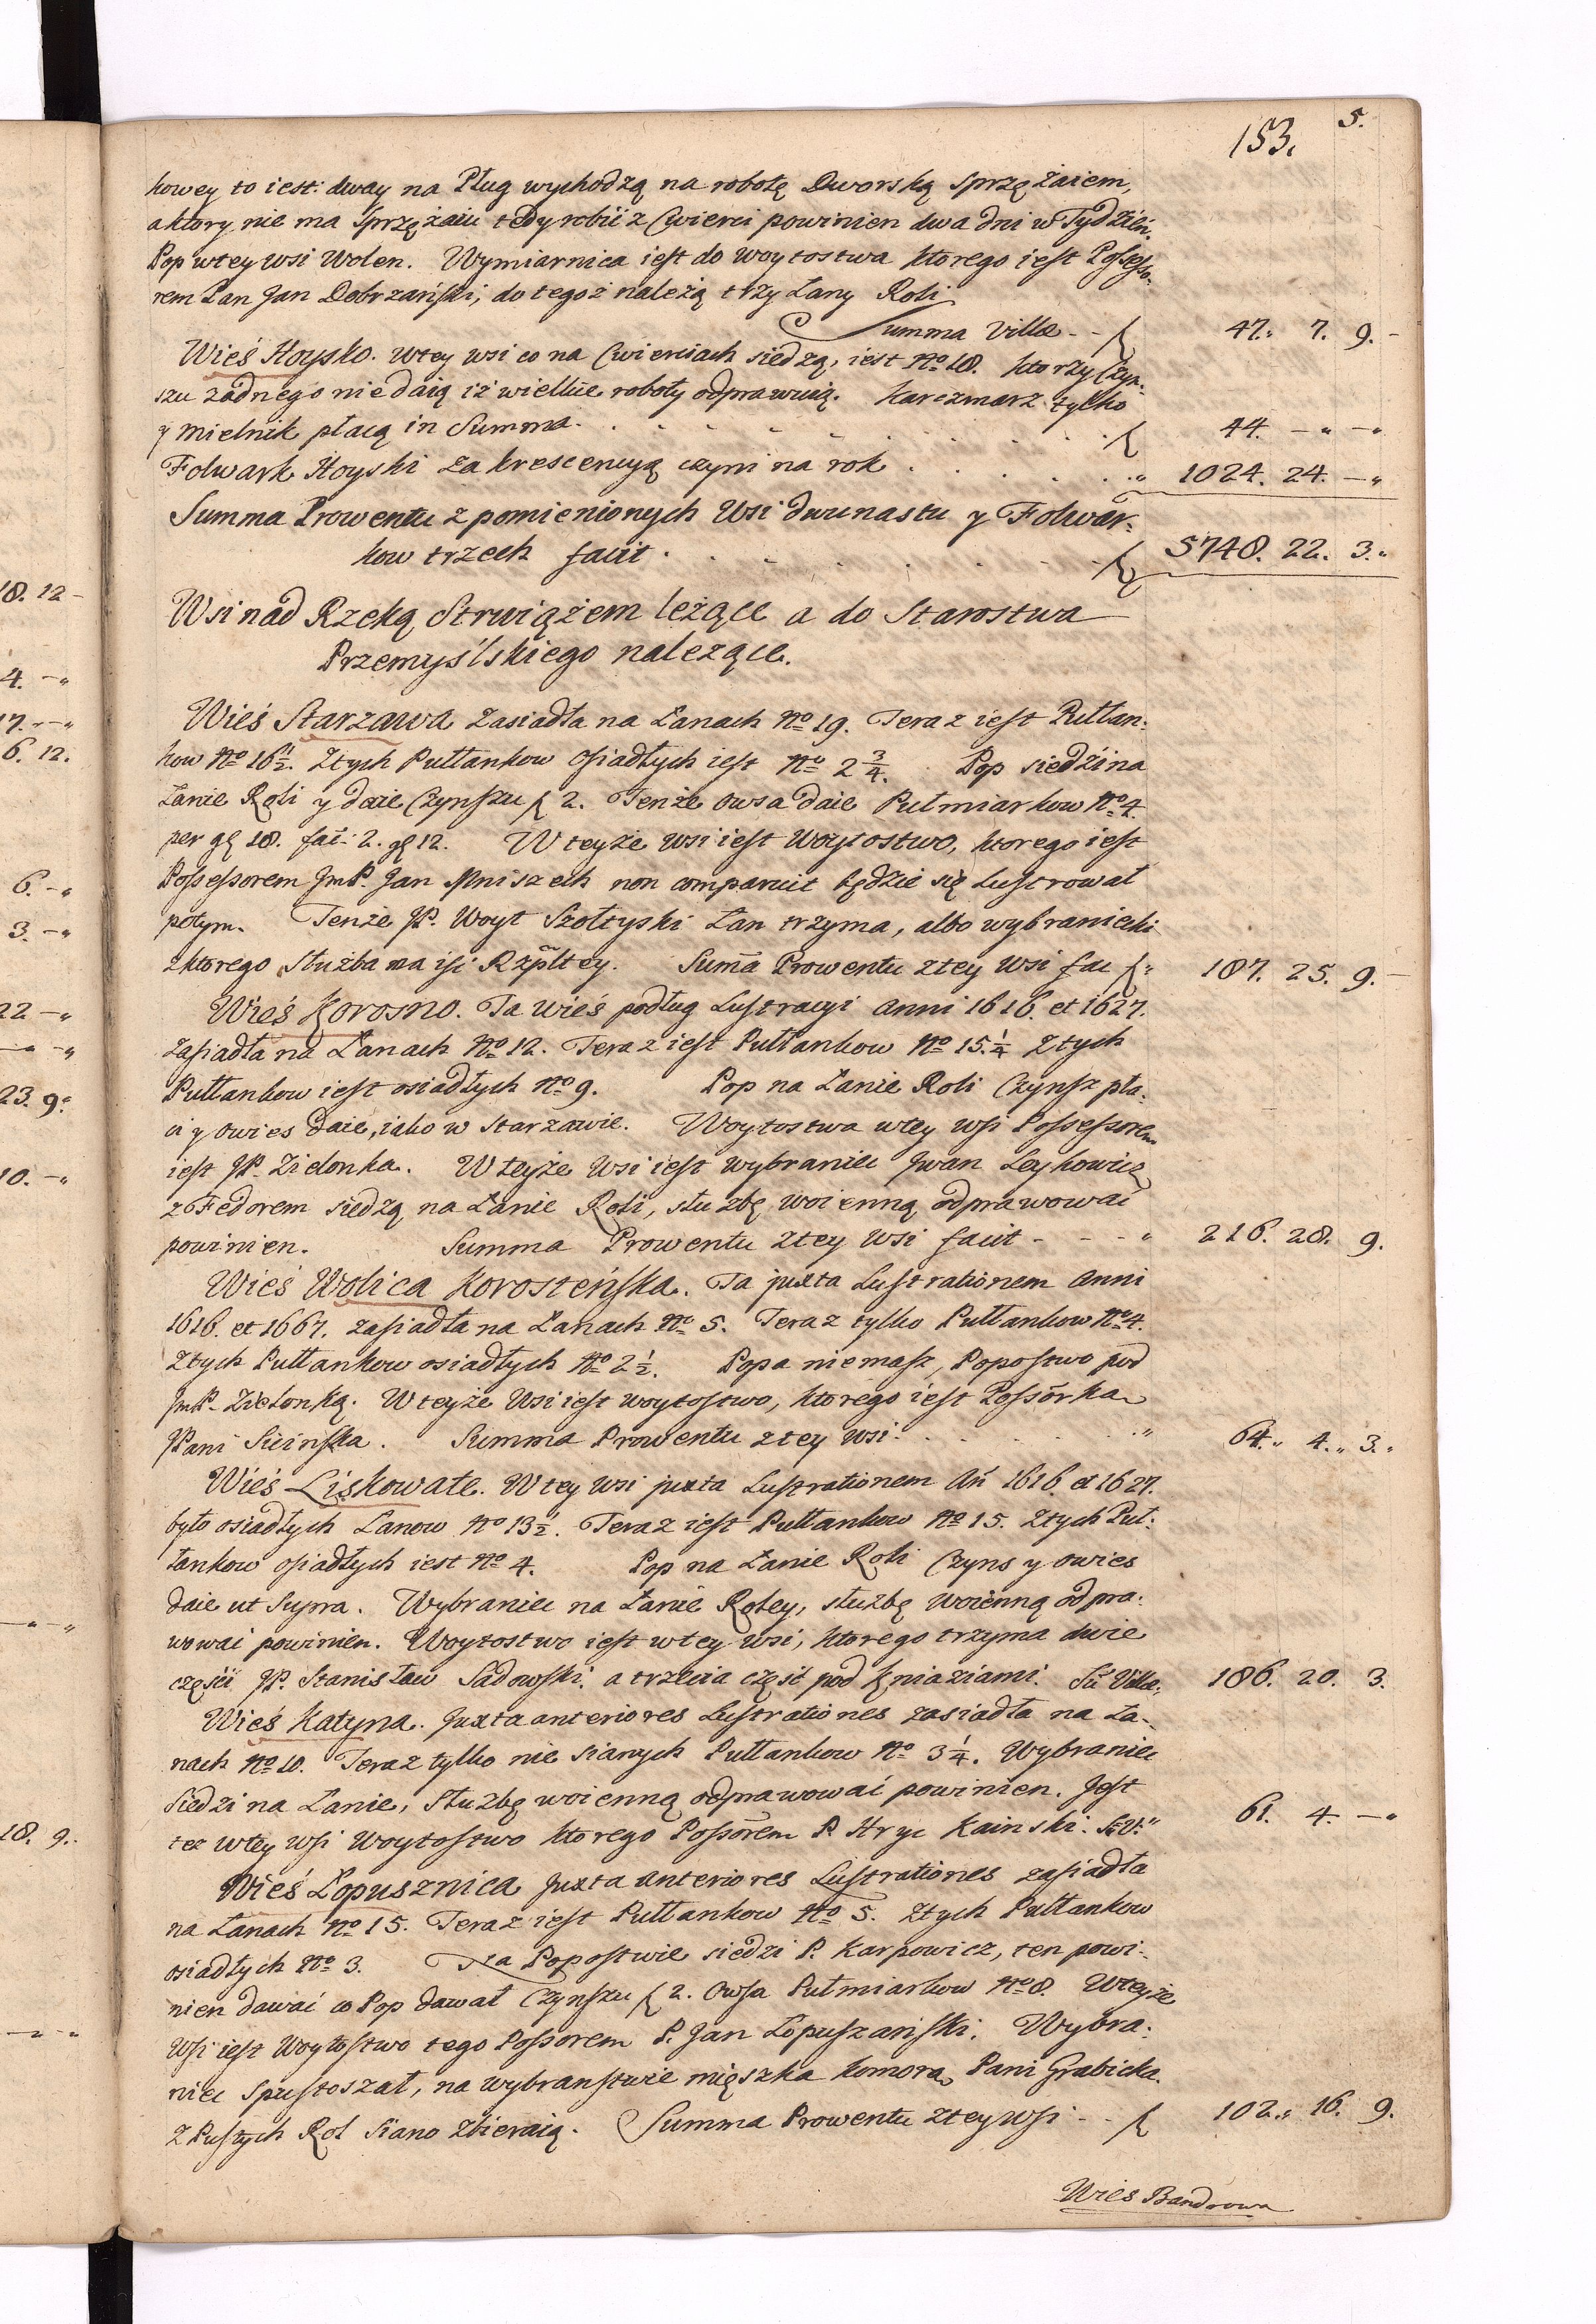 153. 5.
kowey to iest: dway na Pług wychodzą na robotę Dworską Sprzężaiem,
a ktory nie ma Sprzężaiu tedy robić z Cwierci powinien dwa dni w Tydzień.
Pop w tey wsi Wolen. Wymiarnica iest do Woytostwa ktorego iest Possesso-
rem Pan Jan Dobrzański, do tegoż należą trzy Łany Roli
Summa Villæ - - f 47. 7. 9. -
Wieś Hoysko. W tey wsi co na Cwierciach siedzą, iest No 18. ktorzy Czyn-
szu żadnego nie daią iż wielkie roboty odprawuią. Karczmarz tylko
y Mielnik płacą in Summa . . . . f 44. - " - "
Folwark Hoyski za krescencyą czyni na rok . . . " 1024. 24. - "
Summa Prowentu z pomienionych Wsi dwunastu y Folwar-
kow trzech facit . . . . f 5748. 22. 3. "
Wsi nad Rzeką Strwiążem leżące a do Starostwa
Przemyślskiego należące.
Wieś Starzawa zasiadła na Łanach No 19. Teraz iest Pułłan-
kow No 16 1/2. Z tych Pułłankow osiadłych iest No 2 3/4. Pop siedzi na
Łanie Roli y daie Czynszu f 2. Tenże Owsa daie Pułmiarkow No 4.
per gę 18. faci: 2. gę 12. W teyże wsi iest Woytostwo, ktorego iest
Possessorem JmP. Jan Mniszech non comparuit będzie się Lustrował
potym. Tenże JP. Woyt Szołtyski Łan trzyma, albo wybraniecki
z ktorego Służba ma iść Rzpltey. Sum̃a Prowentu z tey Wsi fac f " 187. 25. 9. -
Wieś Korosno. Ta wieś podług Lustracyi Anni 1616. et 1627.
zasiadła na Łanach No 12. Teraz iest Pułłankow No 15. 1/4 Z tych
Pułłankow iest osiadłych No 9. Pop na Łanie Roli Czynsz pła-
ci y Owies daie, iako w Starzawie. Woytostwa w tey wsi Possessorem
iest JP. Zielonka. W teyże Wsi iest wybraniec Jwan Leykowicz
z Fedorem siedzą na Łanie Roli, służbę woienną odprawować
powinien. Summa Prowentu z tey Wsi facit - - - " 216. 28. 9.
Wieś Wolica Korosteńska. Ta juxta Lustrationem Anni
1616. et 1667. zasiadła na Łanach No 5. Teraz tylko Pułłankow No 4.
Z tych Pułłankow osiadłych No 2 1/2. Popa niemasz, Popostwo pod
JmP. Zielonką. W teyże Wsi iest woytostwo, ktorego iest Possorka
JPani Sicińska. Summa Prowentu z tey wsi . . . . " 64. " 4. " 3. "
Wieś Liskowate. W tey Wsi juxta Lustrationem Añ 1616. et 1627.
było osiadłych Łanow No 13 1/2. Teraz iest Pułłankow No 15. Z tych Puł-
łankow osiadłych iest No 4. Pop na Łanie Roli Czyns y owies
daie ut Supra. Wybraniec na Łanie Roley, służbę Woienną odpra-
wować powinien. Woytostwo iest w tey wsi, ktorego trzyma dwie
części JP. Stanisław Sadowski. a trzecia część pod Kniaziami. Sũ Villæ. 186. 20. 3.
Wieś Katyna. Juxta anteriores Lustrationes zasiadła na Ła-
nach No 10. Teraz tylko nie sianych Pułłankow No 3 1/4. Wybraniec
siedzi na Łanie, Służbę woienną odprawować powinien. Jest
też w tey wsi Woytostwo ktorego Possorem P. Hryc Kainski. S. V. " 61. 4. - "
Wieś Łopusznica Juxta anteriores Lustrationes zasiadła
na Łanach No 15. Teraz iest Pułłankow No 5. Z tych Pułłankow
osiadłych No 3. Na Popostwie siedzi P. Karpowicz, ten powi-
nien dawać co Pop dawał Czynszu f 2. Owsa Pułmiarkow No 8. W teyże
Wsi iest Woytostwo tego Possorem P. Jan Łopuszański. Wybra-
niec Spustoszał, na wybranstwie mięszka komorą Pani Grabicka.
Z Pustych Rol Siano zbieraią. Summa Prowentu z tey Wsi - - f 102. " 16. 9.
Wieś Bandrowa
18. 12 -
4. - "
17. - "
6. 12.
6. - "
3. - "
22 - "
- " - "
23. 9.
10. - "
- " - "
18. 9.
- " - "